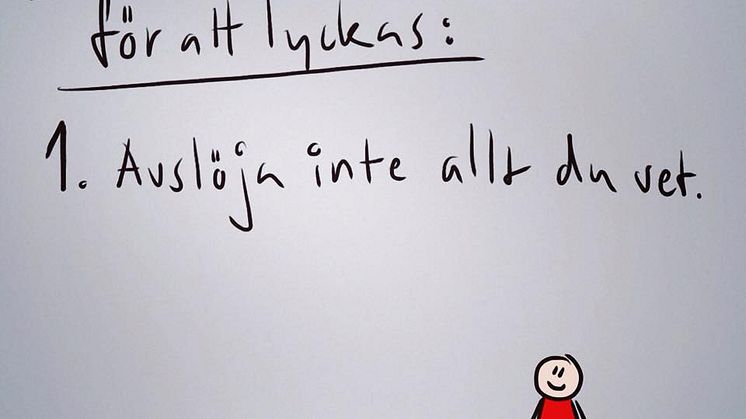 för att lyckas:
1. Avslöja inte allt du vet.